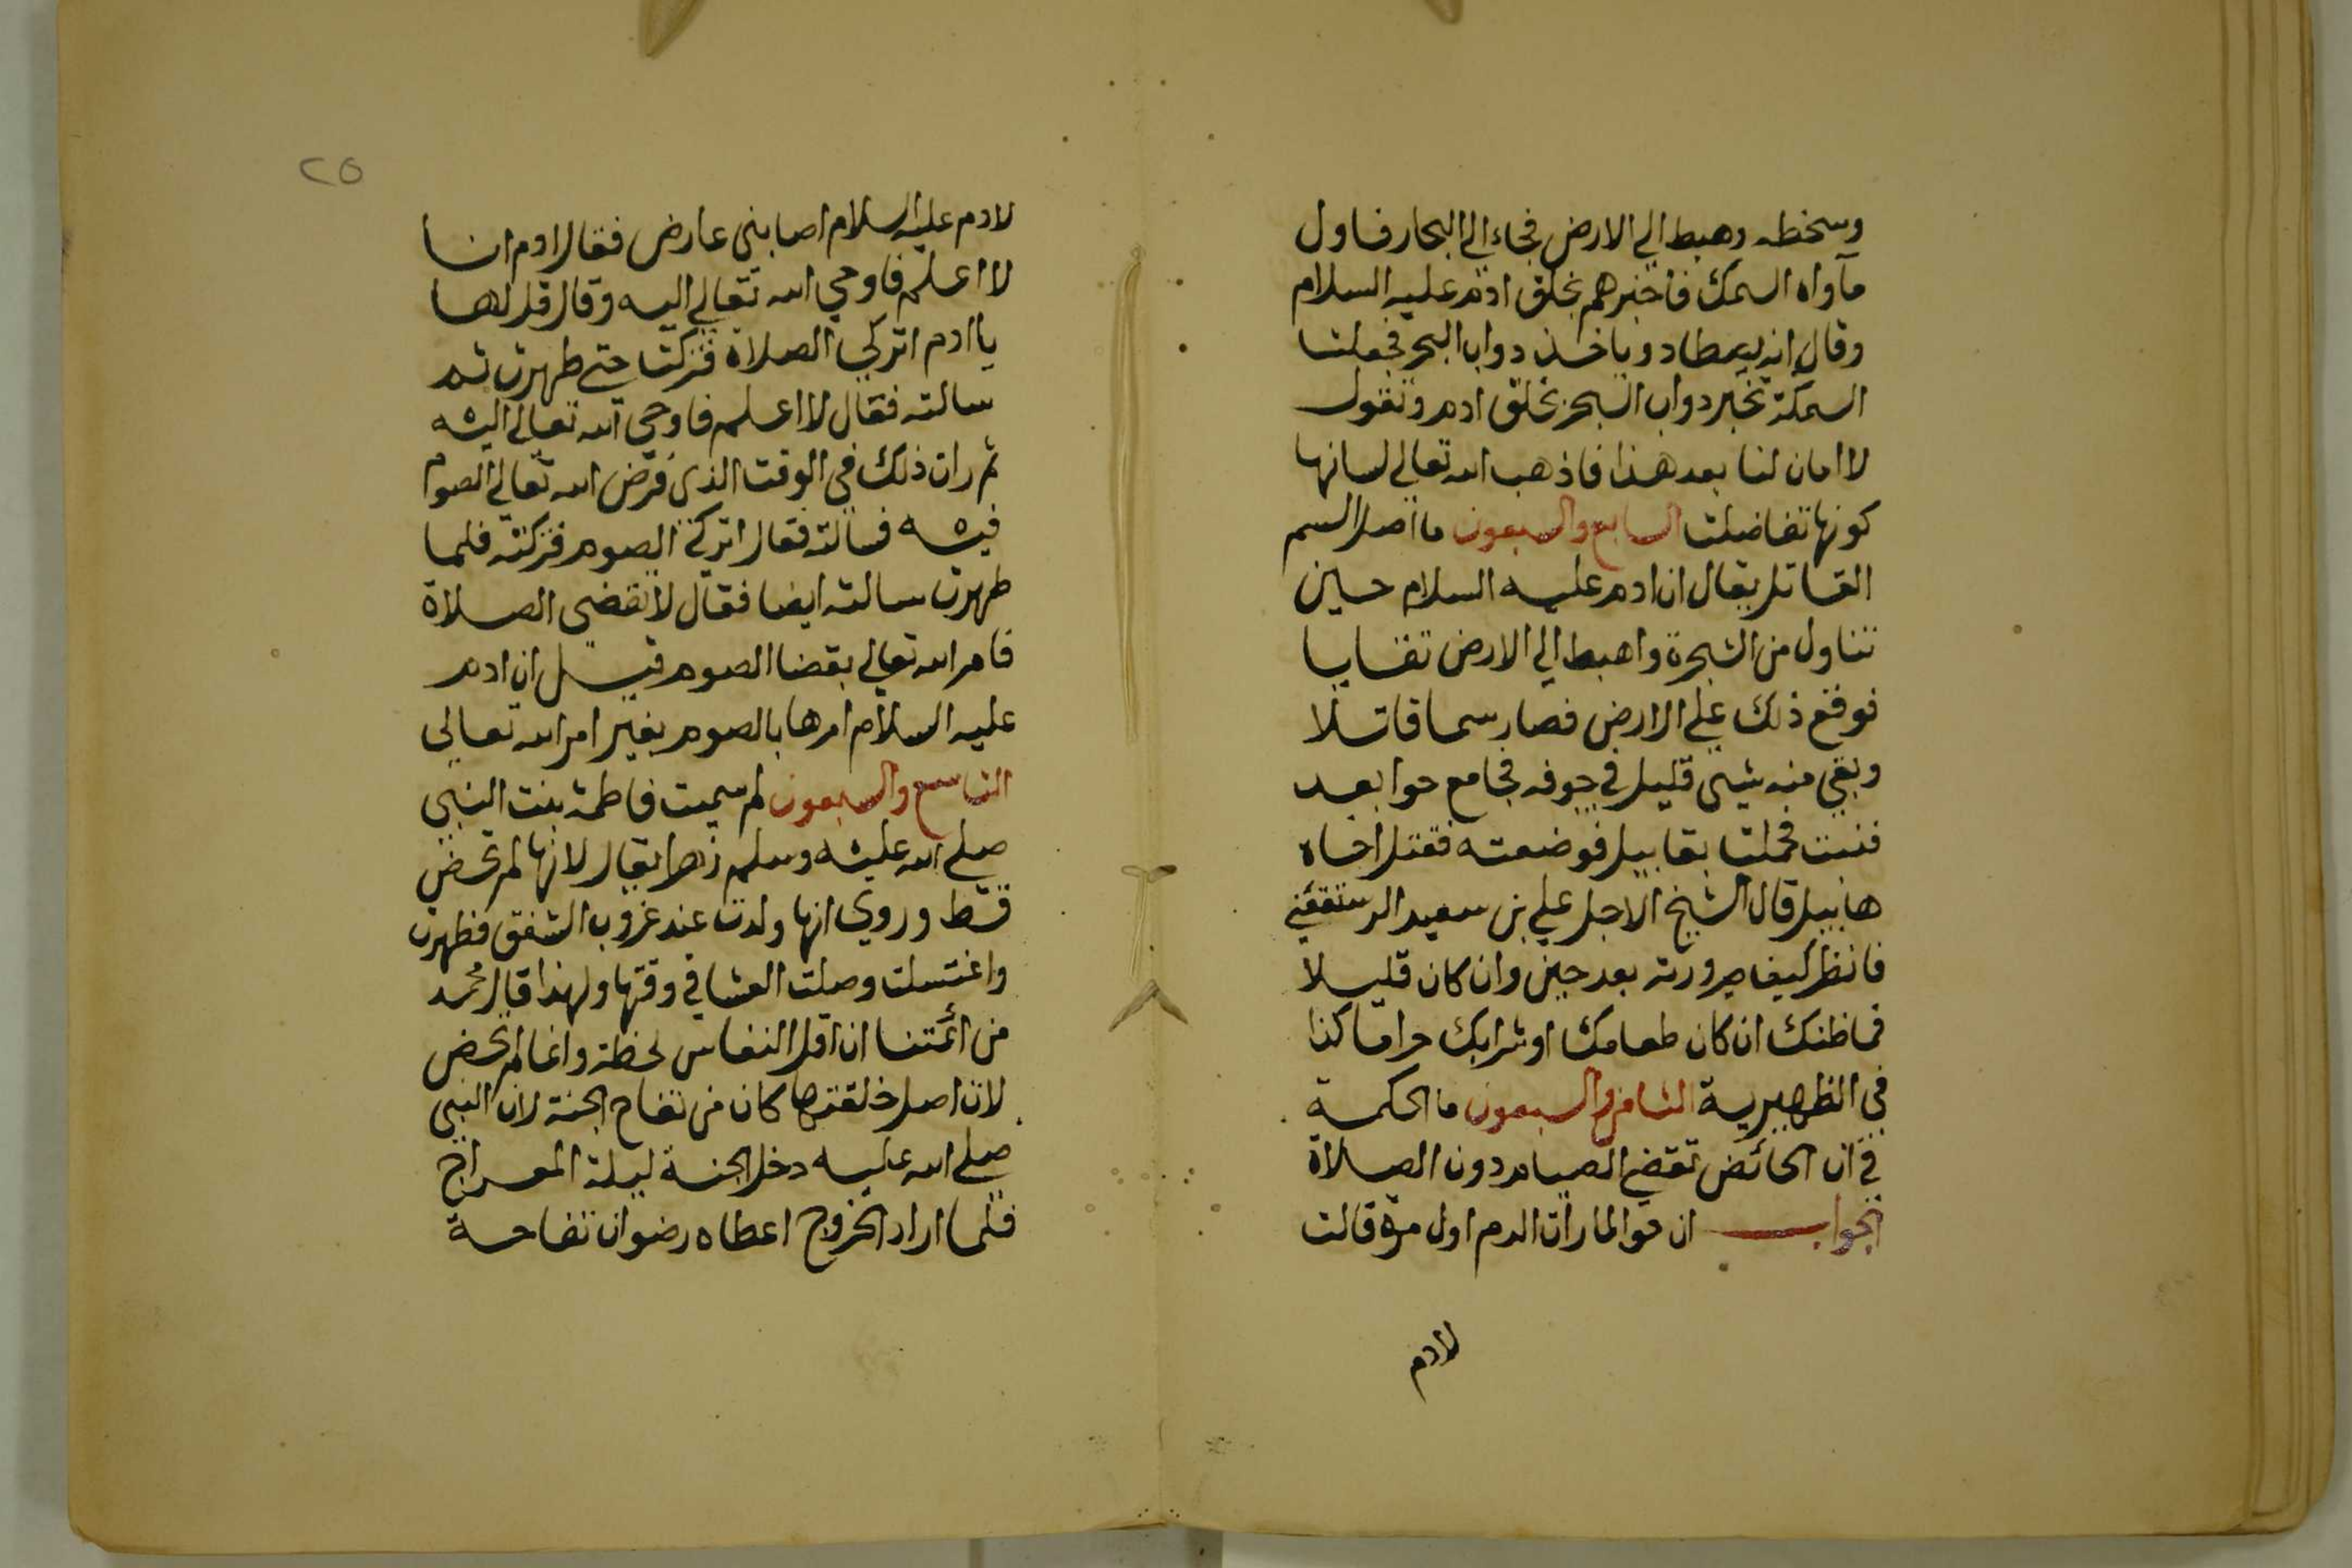 وسخطه وهبط الي الارض فجاء الي البحار فاول
مآواه السمك فاخبرهم بخلق ادم عليه السلام
وقال انه يصطاد وياخذ دواب البحر فجعلت
السمكة تخبر دواب البحر بخلق ادم وتقول
لا امان لنا بعد هذا فاذهب الله تعالي لسانها
كونها تفاضلت السابع والسبعون ما اصل السم
القاتل يقال ان ادم عليه السلام حين
تناول من الشجرة واهبط الي الارض تقايا
فوقع ذلك علي الارض فصار سما قاتلا
وبقي منه شيى قليل في جوفه فجامع حوا بعد
فنبت فحملت بقابيل فوضعته فقتل اخاه
هابيل قال الشيخ الاجل علي بن سعيد الرستغفني
فانظر كيف ضرورته بعد حين وان كان قليلا
فما ظنك ان كان طعامك او شرابك حراما كذا
في الظهيرية الثامن والسبعون ما الحكمة
في ان الحائض تقضي الصيام دون الصلاة
الجواب ان حوا لما رات الدم اول مرة قالت
لادم
٢٥
لادم عليه السلام اصابني عارض فقال ادم انا
لا اعلم فاوحي الله تعالي اليه وقال قل لها
يا ادم اتركي الصلاة فتركت حتي طهرت ثم
سالته فقال لا اعلم فاوحي الله تعالي اليه
ثم رات ذلك في الوقت الذي فرض الله تعالي الصوم
فيه فسالته فقال اتركي الصوم فتركته فلما
طهرت سالته ايضا فقال لا تقضي الصلاة
فامر الله تعالي بقضا الصوم قيل ان ادم
عليه السلام امرها بالصوم بغير امر الله تعالي
التاسع والسبعون لم سميت فاطمة بنت النبي
صلي الله عليه وسلم زهرا يقال لانها لم تحض
قط وروي انها ولدت عند غروب الشفق فطهرت
واغتسلت وصلت العشا في وقتها ولهذا قال محمد
من ائمتنا ان اقل النفاس لحظة وانما لم تحض
لان اصل خلقتها كان من تفاح الجنة لان النبي
صلي الله عليه دخل الجنة ليلة المعراج
فلما اراد الخروج اعطاه رضوان تفاحة